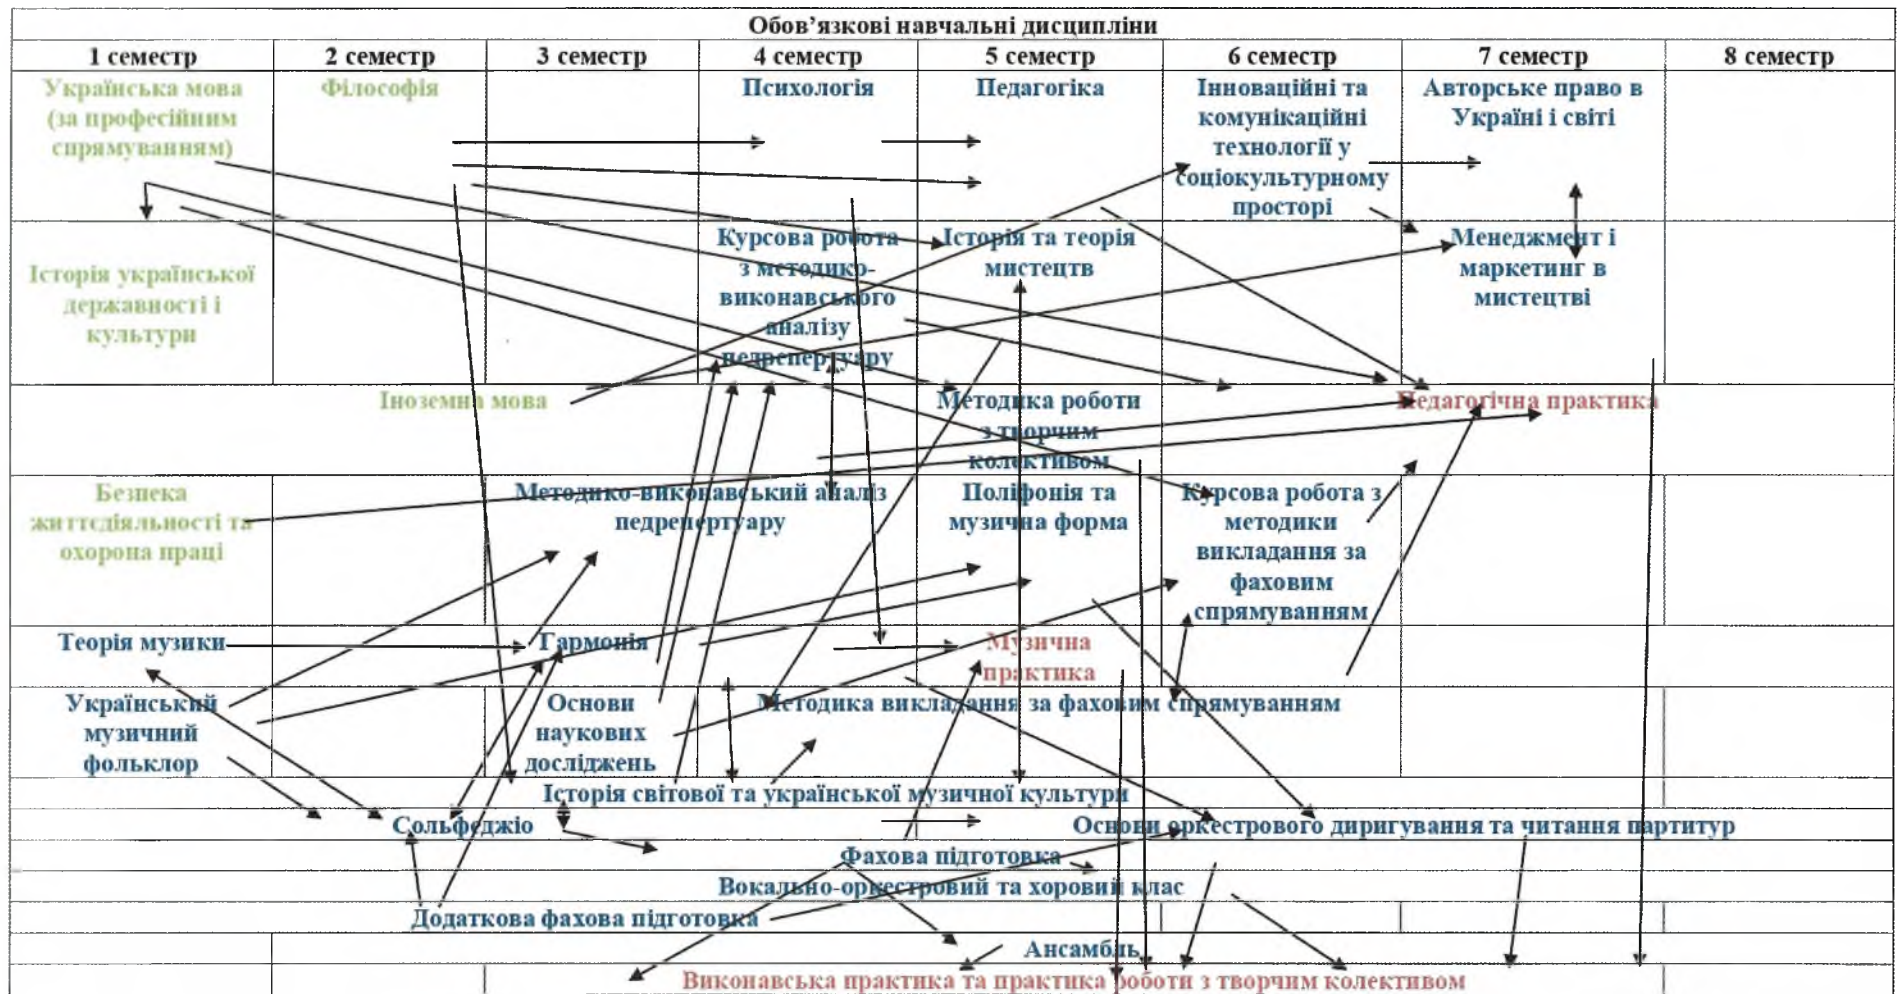 Обов’язкові навчальні дисципліни
1 семестр 2 семестр 3 семестр 4 семестр 5 семестр 6 семестр 7 семестр 8 семестр
Українська мова
(за професійним
спрямуванням)
Філософія
Психологія
Педагогіка
Інноваційні та
комунікаційні
технології у
соціокультурному
просторі
Авторське право в
Україні і світі
Історія української
державності і
культури
Курсова робота
з методико-
виконавського
аналізу
педрепертуару
Історія та теорія
мистецтв
Менеджмент і
маркетинг в
мистецтві
Іноземна мова
Методика роботи
з творчим
колективом
Педагогічна практика
Безпека
життєдіяльності та
охорона праці
Методико-виконавський аналіз
педрепертуару
Поліфонія та
музична форма
Курсова робота з
методики
викладання за
фаховим
спрямуванням
Теорія музики
Гармонія
Музична
практика
Український
музичний
фольклор
Основи
наукових
досліджень
Методика викладання за фаховим спрямуванням
Історія світової та української музичної культури
Сольфеджіо
Основи оркестрового диригування та читання партитур
Фахова підготовка
Вокально-оркестровий та хоровий клас
Додаткова фахова підготовка
Ансамбль
Виконавська практика та практика роботи з творчим колективом